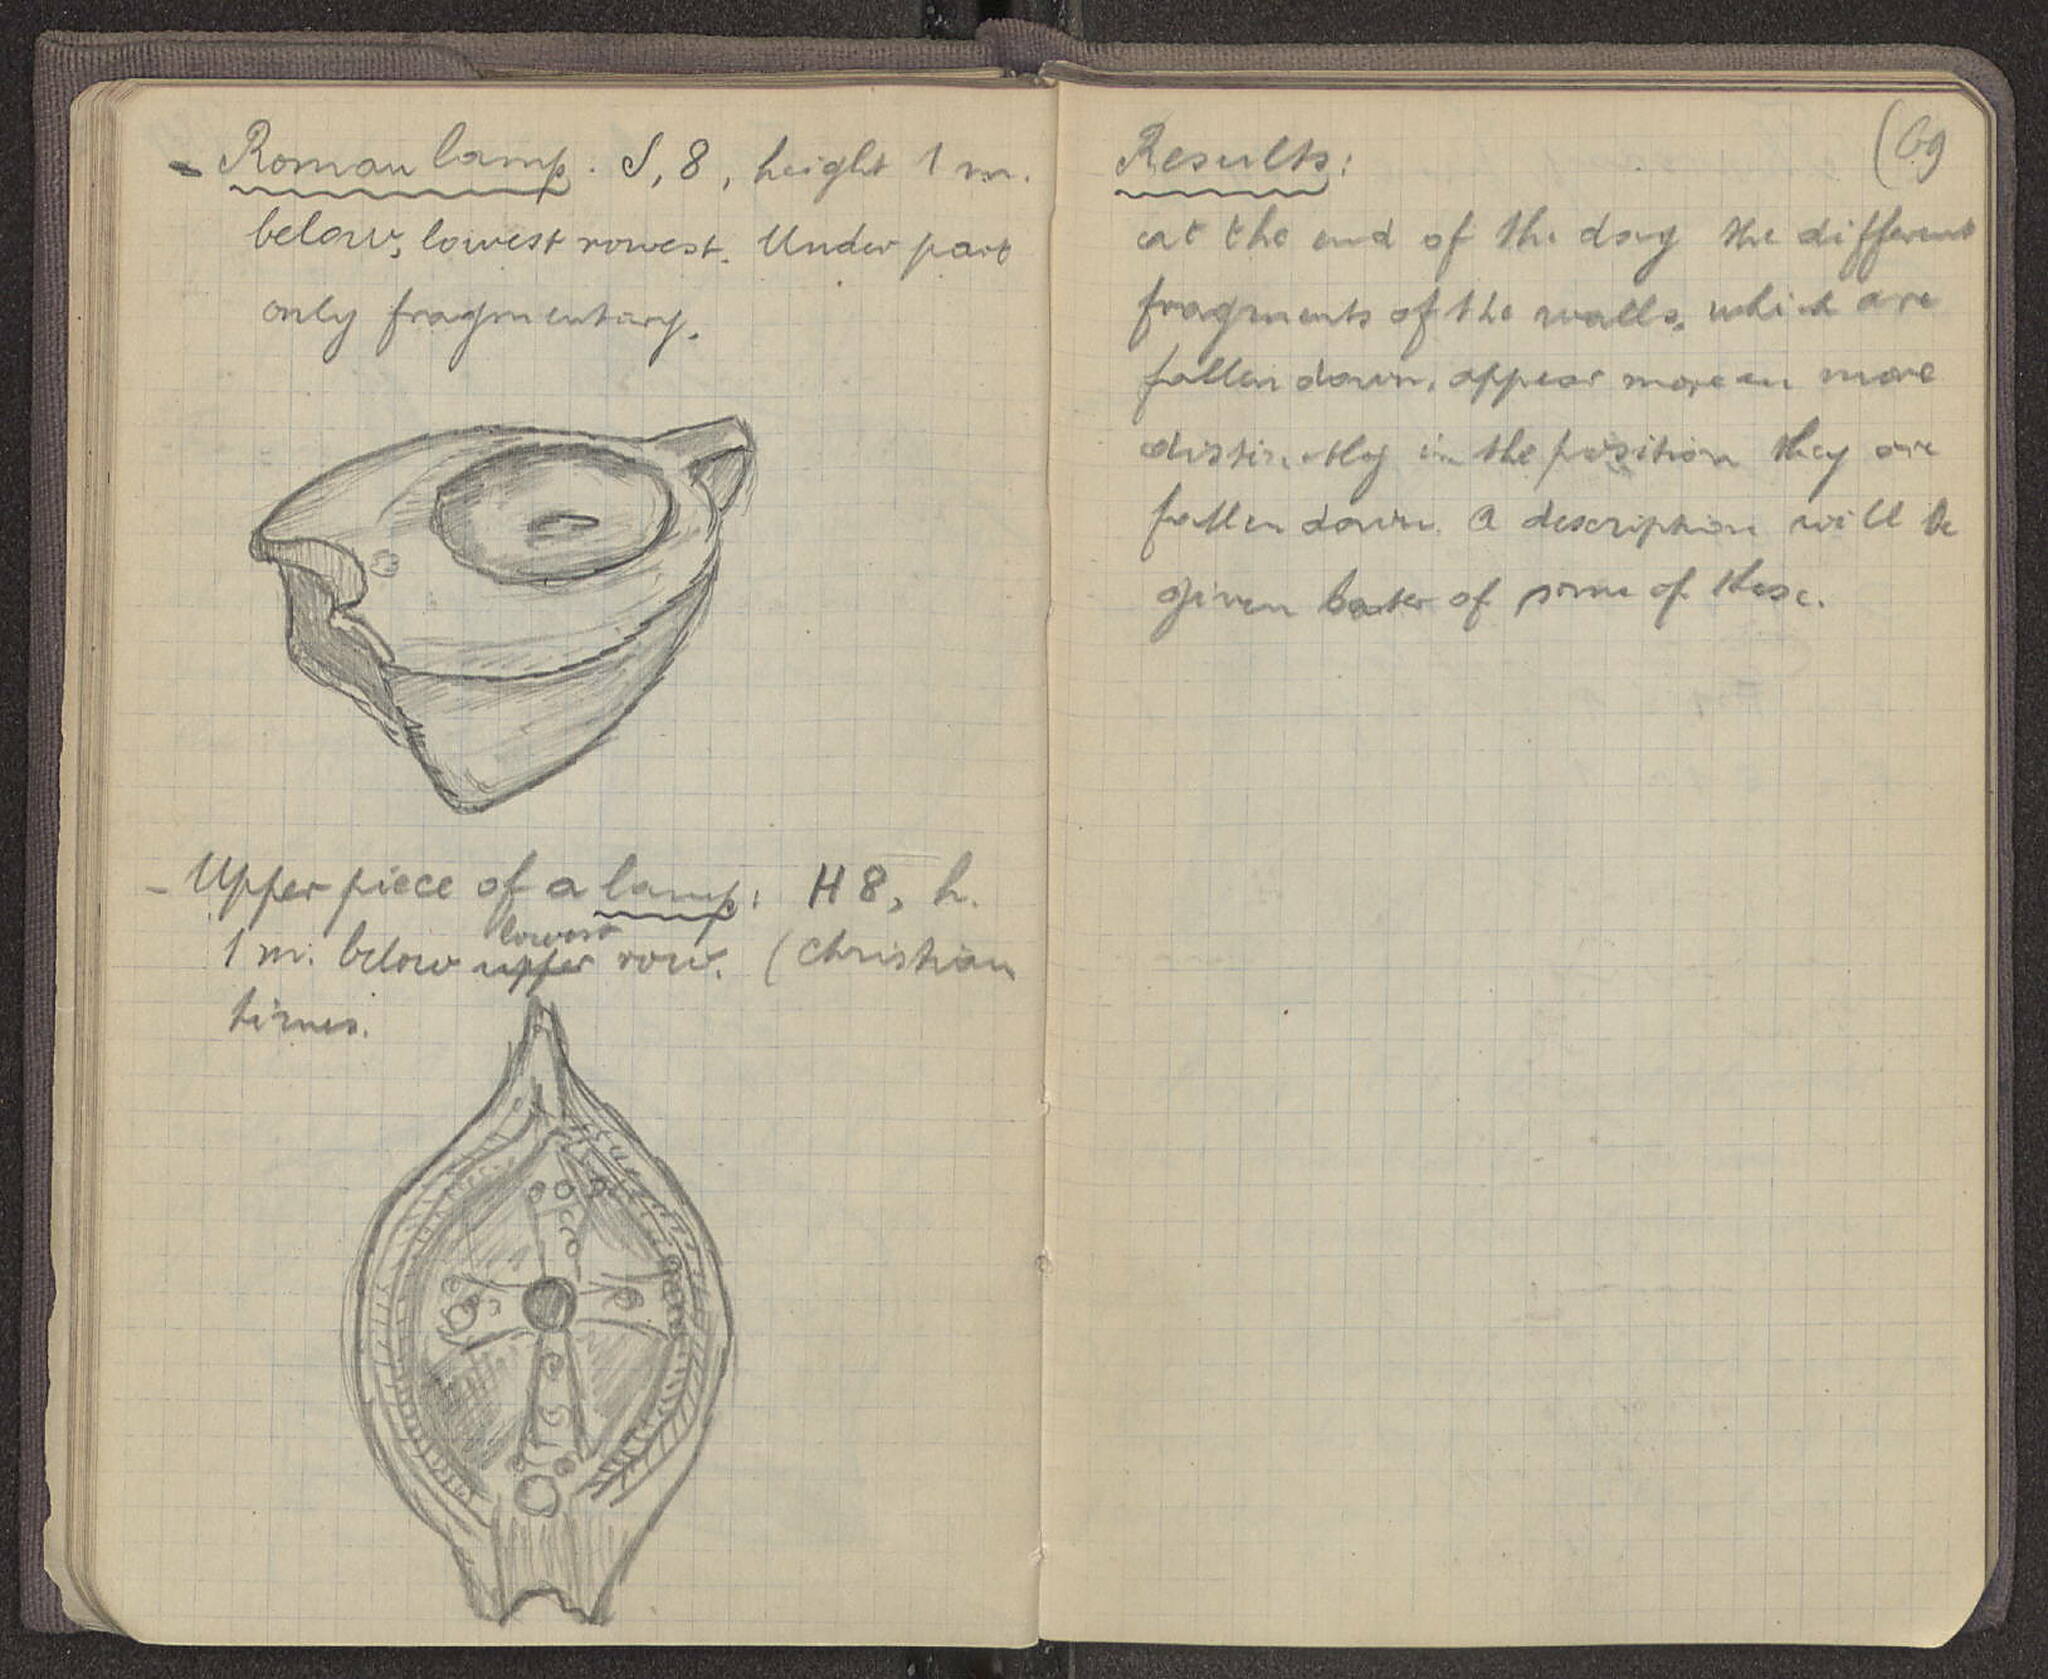 - Roman lamp. S, 8, height 1 m.
below, lowest rowest. Under part
only fragmentary.
- Upper piece of a lamp: H 8, h.
lowest
1 m. below upper row. (Christian
times.
(69
Results:
at the end of the day the different
fragments of the walls, which are
fallen down, appear more en more
distinctly in the position they are
fallen down. A description will be
given later of some of these.